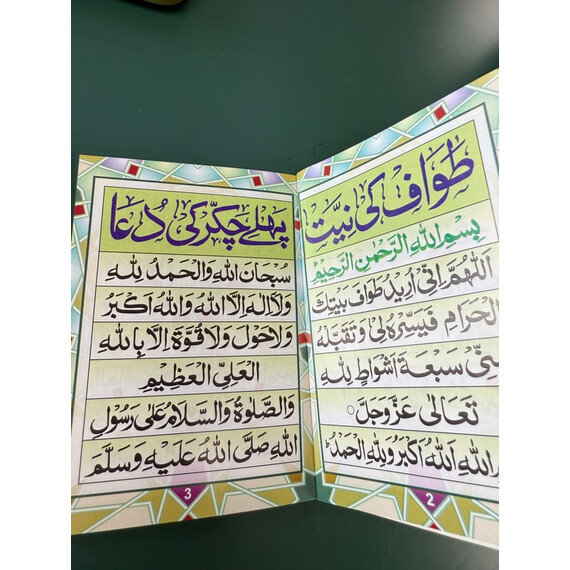 طَوَاف کی نیَّت
بِسْمِ اللهِ الرَّحْمٰنِ الرَّحِیْمِ
اَللّٰهُمَّ اِنِّیْ اُرِیْدُ طَوَافَ بَیْتِكَ
الْحَرَامِ فَیَسِّرْهُ لِیْ وَتَقَبَّلْهُ
مِنِّیْ سَبْعَةَ اَشْوَاطٍ لِلّٰهِ
تَعَالٰی عَزَّوَجَلَّ
اللهِ اَللهُ اَکْبَرُ وَلِلّٰهِ الْحَمْدُ
2
پہلے چکّر کی دُعا
سُبْحَانَ اللهِ وَالْحَمْدُ لِلّٰهِ
وَلَا اِلٰهَ اِلَّا اللهُ وَاللهُ اَکْبَرُ
وَلَا حَوْلَ وَلَا قُوَّةَ اِلَّا بِاللهِ
الْعَلِیِّ الْعَظِیْمِ
وَالصَّلٰوةُ وَالسَّلَامُ عَلٰی رَسُوْلِ
اللهِ صَلَّی اللهُ عَلَیْهِ وَسَلَّمَ
3